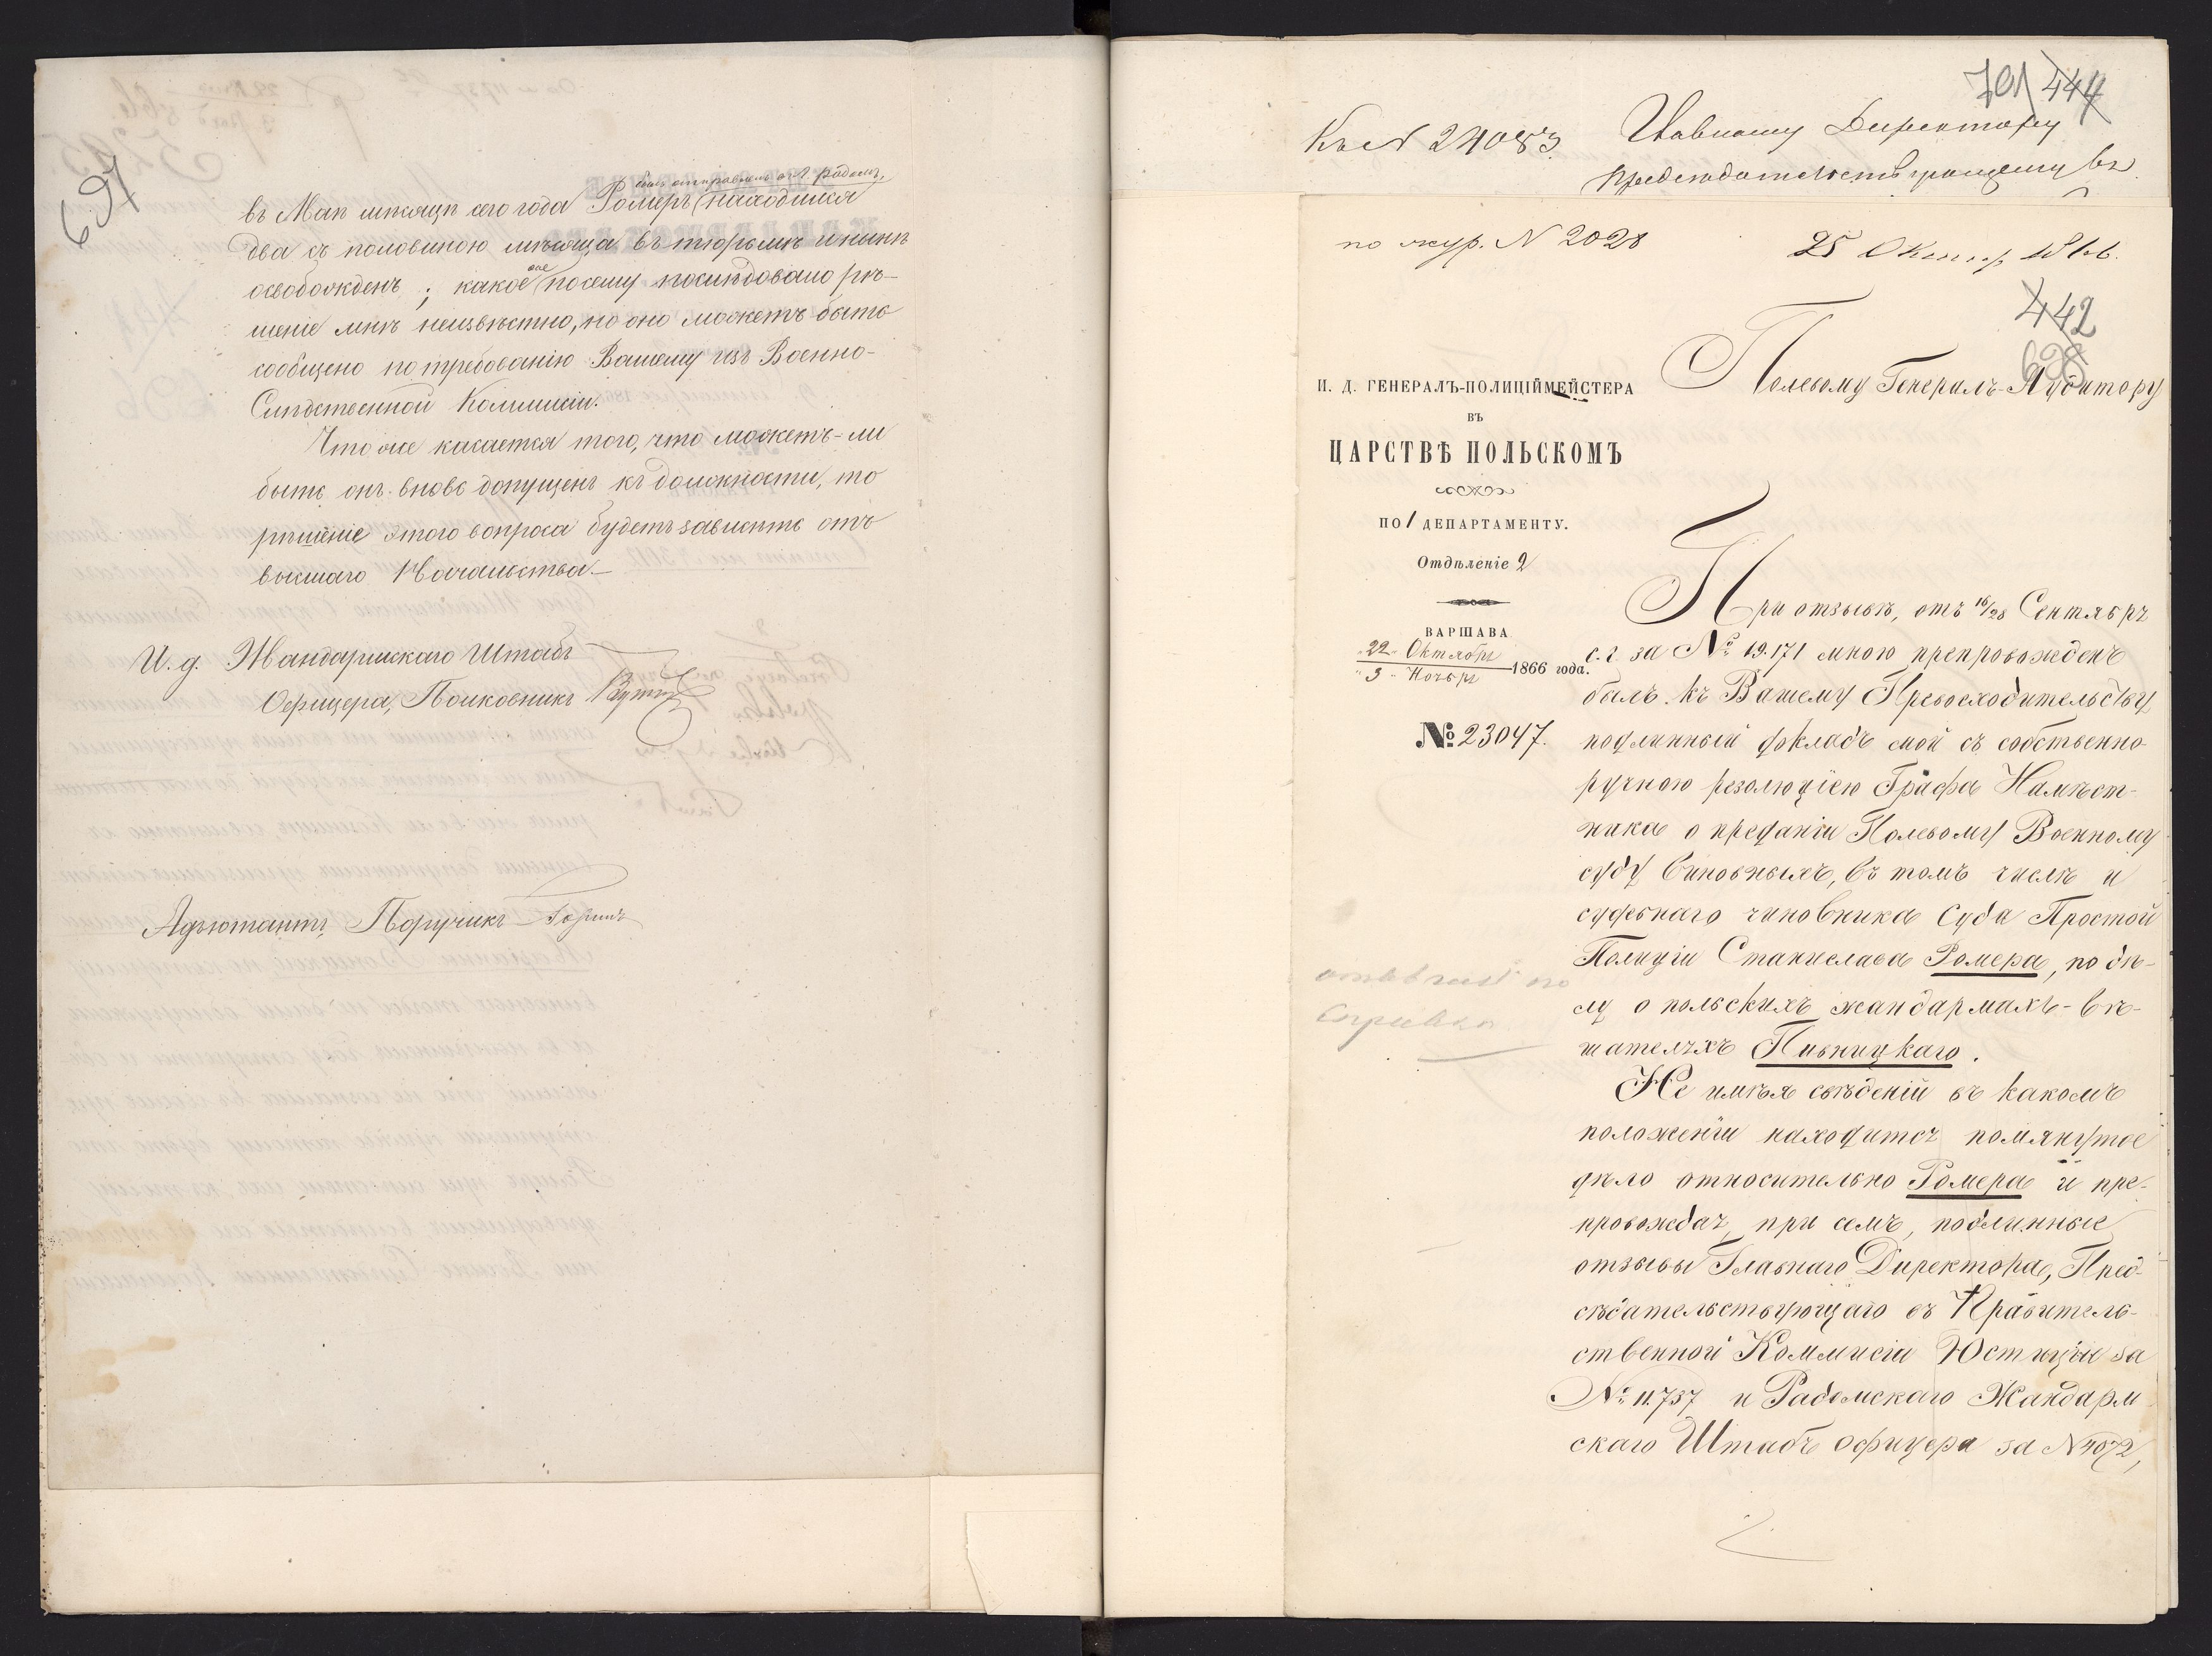 697
былъ отправленъ въ г. Радомъ,
въ Маѣ мѣсяцѣ сего года Ромеръ (находился
два съ половиною мѣсяца въ тюрьмѣ и нынѣ
освобожденъ; какое же по сему послѣдовало рѣ-
шеніе мнѣ неизвѣстно, но оно можетъ быть
сообщено по требованію Вашему изъ Военно-
Слѣдственной Коммисіи.
Что же касается того, что можетъ-ли
быть онъ вновь допущенъ къ должности, то
рѣшеніе этого вопроса будетъ зависить отъ
высшаго Начальства.-
И. д. Жандармскаго Штабъ
Офицера, Полковникъ
Адъютантъ, Поручикъ
701 444
Къ № 24083. Главному Директору
Предсѣдательствующему въ
по жур. N 2028 25 Октяр. 1866.
442
698
И. Д. ГЕНЕРАЛЪ-ПОЛИЦІЙМЕЙСТЕРА
ВЪ
ЦАРСТВѢ ПОЛЬСКОМЪ
ПО 1 ДЕПАРТАМЕНТУ.
Отдѣленіе 2
ВАРШАВА
22 Октября
3 Ноября 1866 года.
№ 23047.
Полевому Генералъ-Аудитору
При отзывѣ, отъ 16/28 Сентября
с. г. за № 19.171 мною препровожденъ
былъ къ Вашему Превосходительству
подлинный докладъ мой съ собственно-
ручною резолюціею Графа Намѣст-
ника о преданіи Полевому Военному
суду виновныхъ, въ томъ числѣ и
судебнаго чиновника Суда Простой
Полиціи Станислава Ромера, по дѣ-
лу о польскихъ жандармахъ-вѣ-
шателяхъ Пивницкаго.
Не имѣя свѣдѣній въ какомъ
положеніи находится помянутое
дѣло относительно Ромера и пре-
провождая, при семъ, подлинные
отзывы Главнаго Директора, Пред-
сѣдательствующаго въ Правитель-
ственной Коммисіи Юстиціи за
№ 11.737 и Радомскаго Жандарм
скаго Штабъ офицера за N 4072,